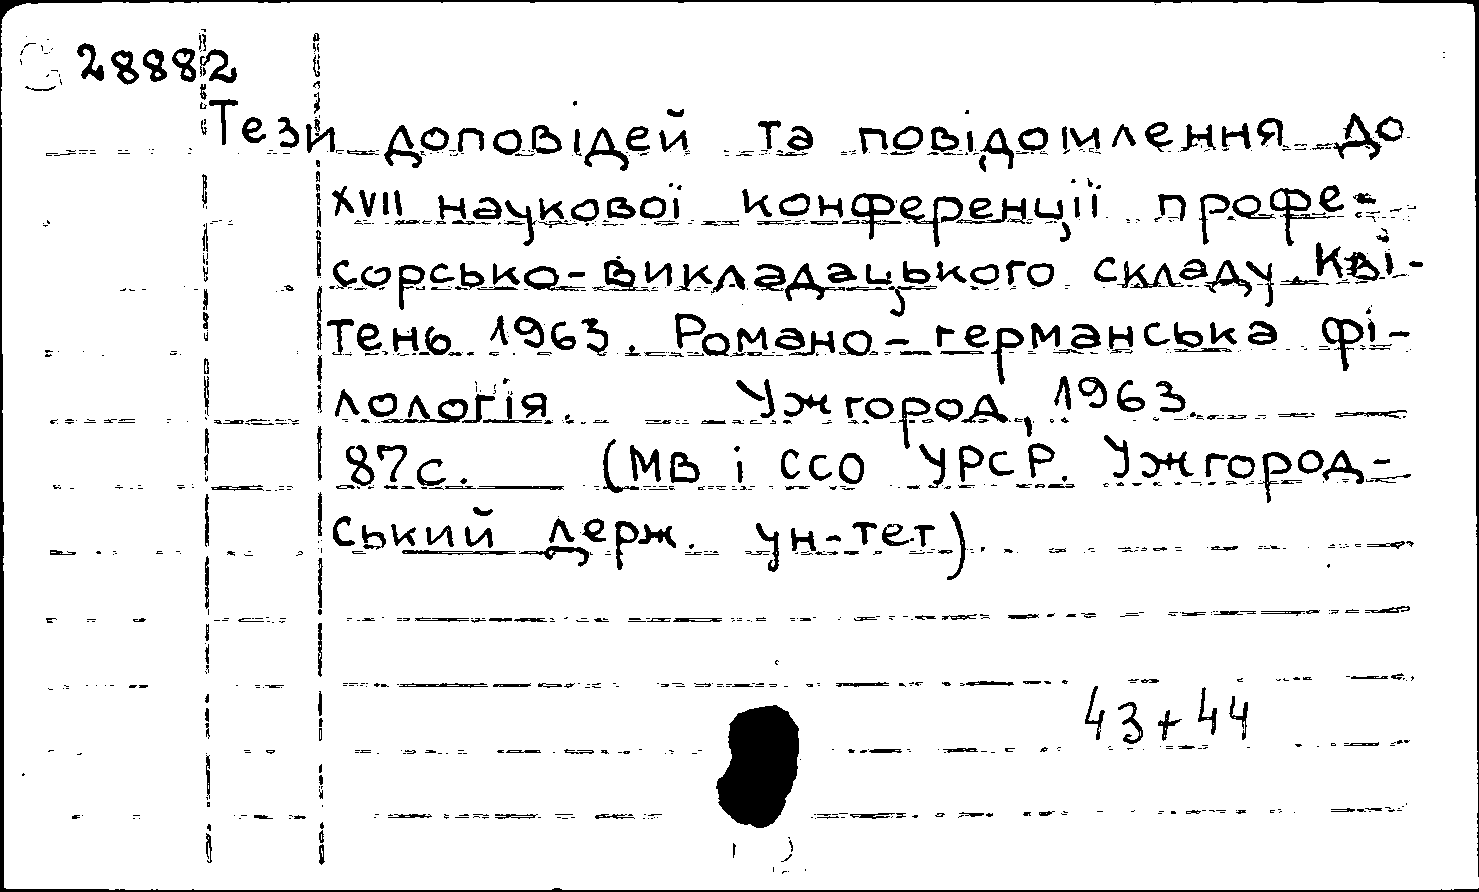 28882
Тези доповідей та повідомлення до
XVII наукової конференції профе-
сорсько-викладацького складу. Кві-
тень 1963. Романо-германська фі-
лологія. Ужгород, 1963.
87с. (МВ і ССО УРСР. Ужгород-
ський держ. ун-тет)
43+44